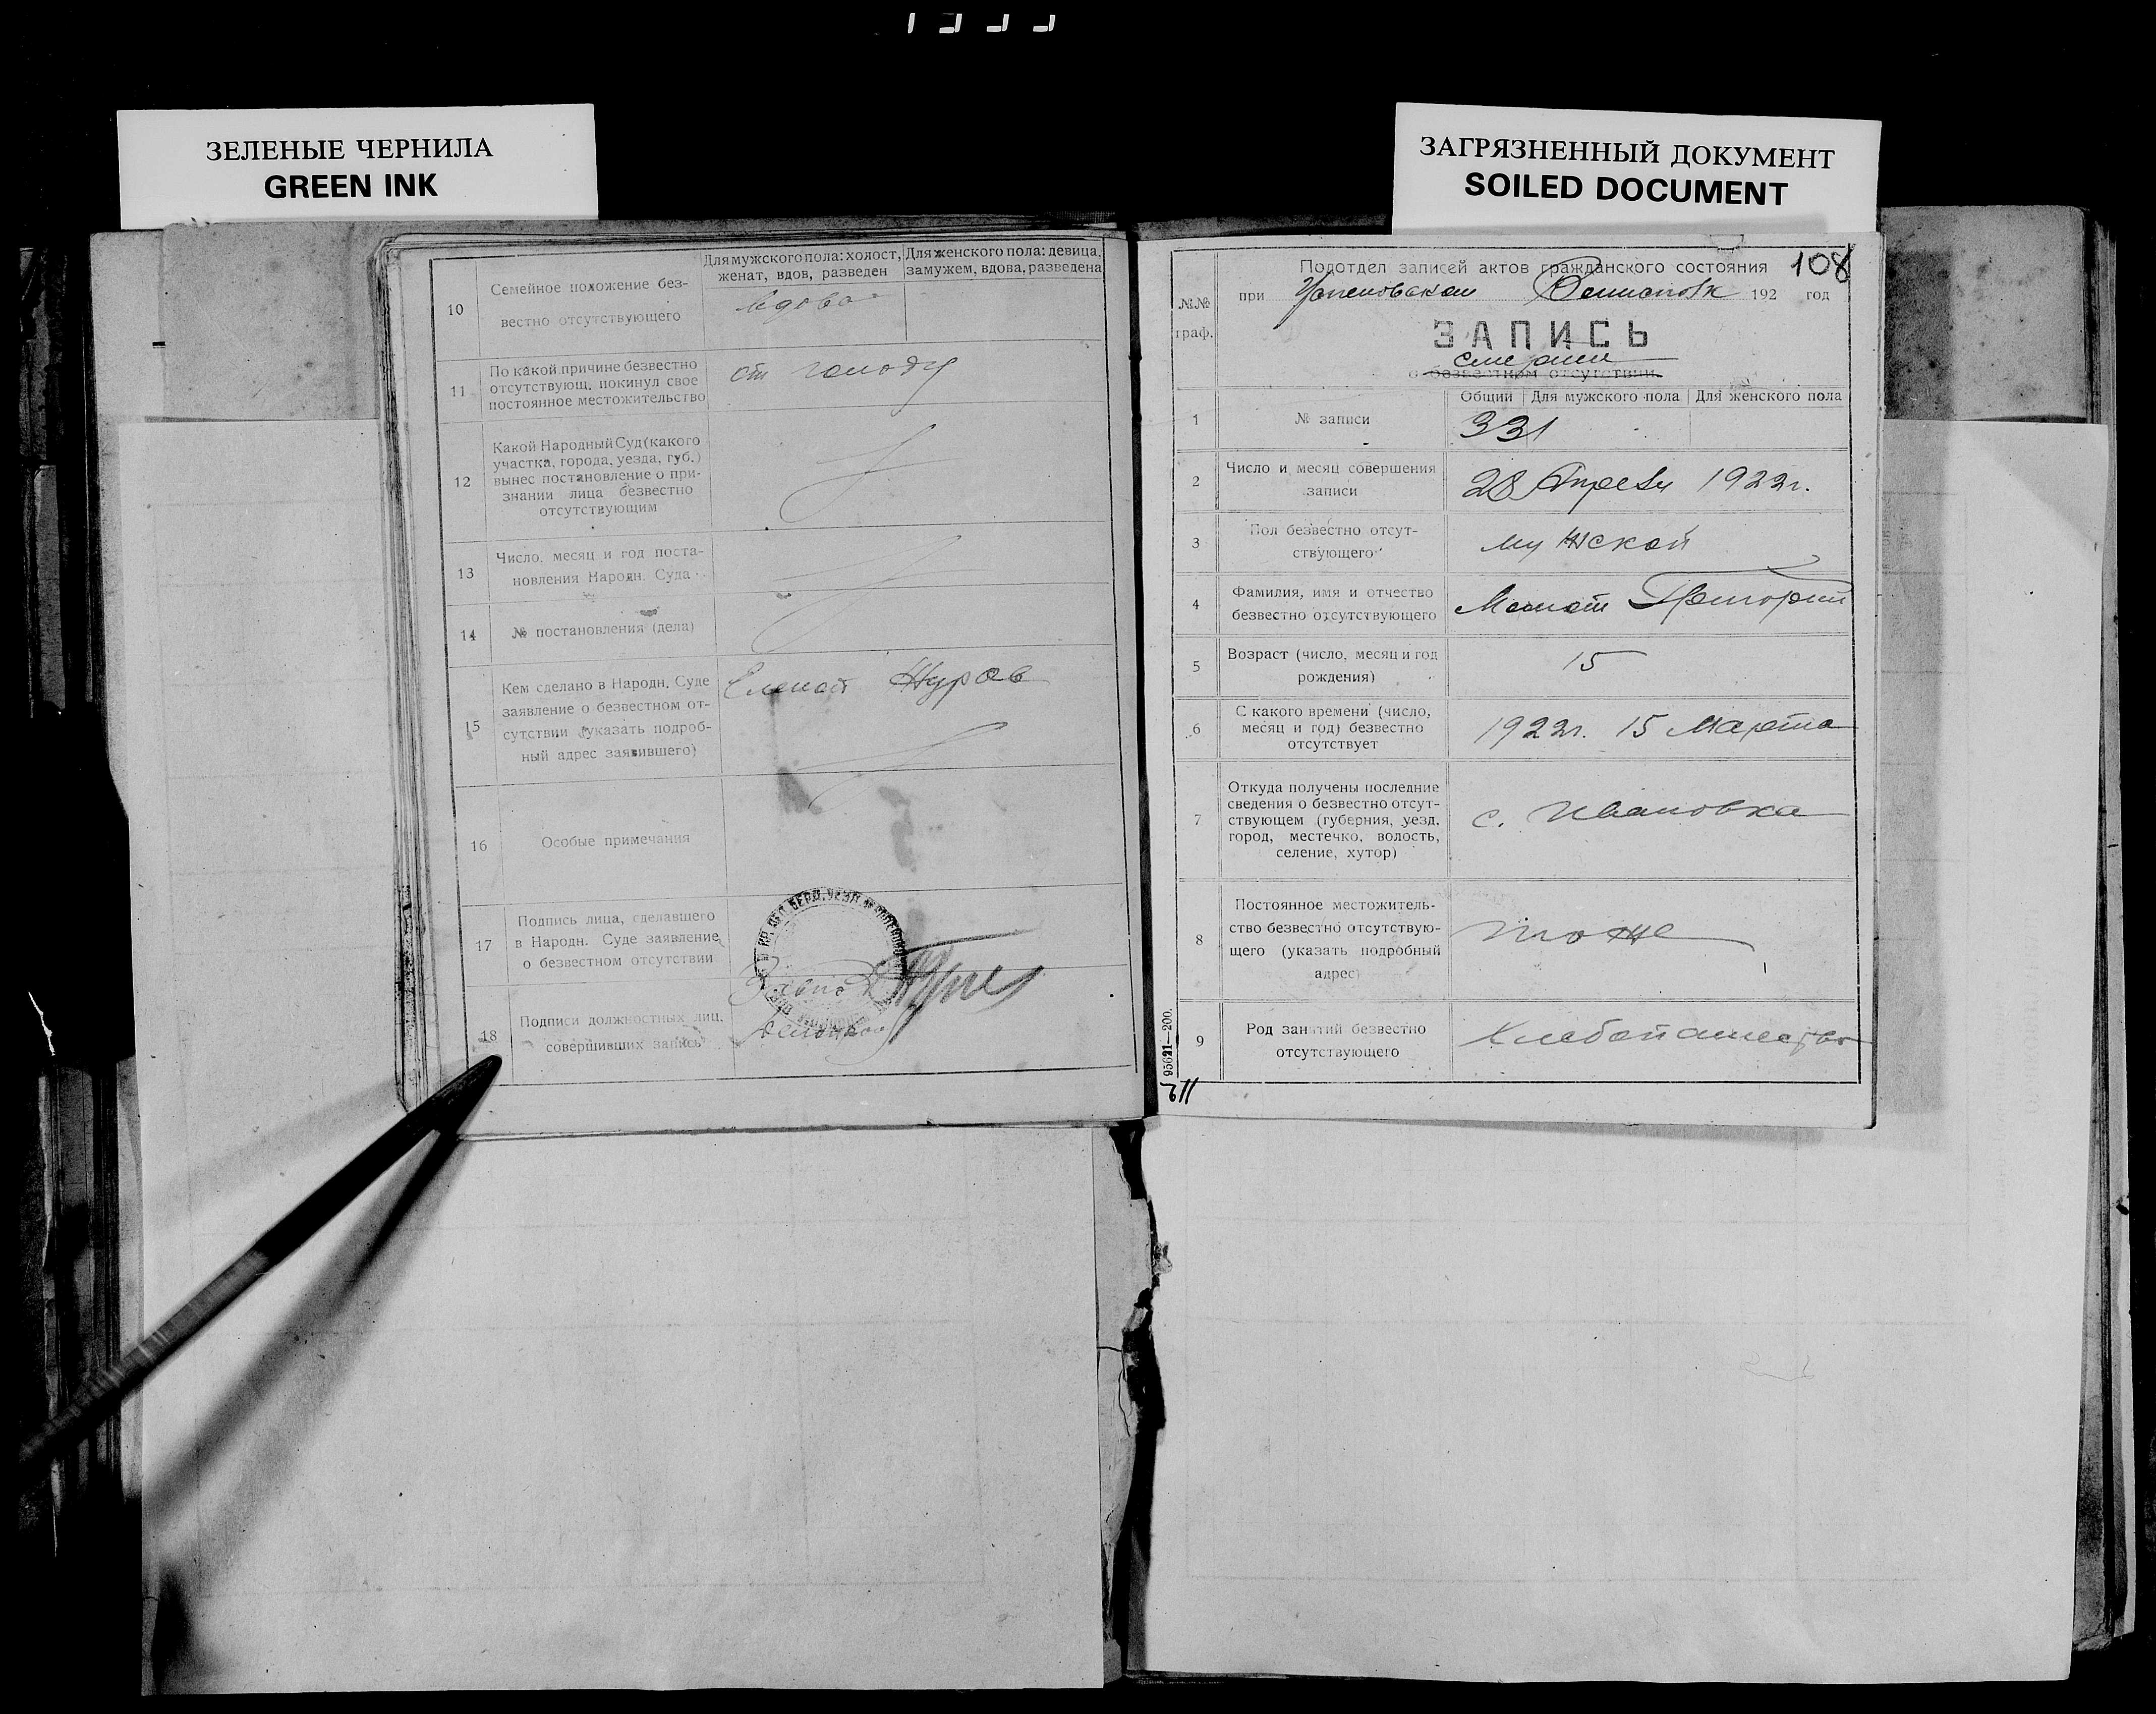 ЗЕЛЕНЫЕ ЧЕРНИЛА
GREEN INK
ЗАГРЯЗНЕННЫЙ ДОКУМЕНТ
SOILED DOCUMENT
10
Семейное положение без-
вестно отсутствующего
Для мужского пола: холост,
женат, вдов, разведен
Для женского пола: девица,
замужем, вдова, разведена
вдова
11
По какой причине безвестно
отсутствующ. покинул свое
постоянное местожительство
от голоду
12
Какой Народный Суд (какого
участка, города, уезда, губ.)
вынес постановление о при-
знании лица безвестно
отсутствующим
13
Число, месяц и год поста-
новления Народн. Суда
14
№ постановления (дела)
15
Кем сделано в Народн. Суде
заявление о безвестном от-
сутствии (указать подроб-
ный адрес заявившего)
16
Особые примечания
17
Подпись лица, сделавшего
в Народн. Суде заявление
о безвестном отсутствии
18
Подписи должностных лиц,
совершивших запись
108
Подотдел записей актов гражданского состояния
при 192 год
№№
граф.
ЗАПИСЬ
смерти
о безвестном отсутствии.
Общий Для мужского пола Для женского пола
1
№ записи
331
2
Число и месяц совершения
записи
28 Апреля 1922г.
3
Пол безвестно отсут-
ствующего
мужской
4
Фамилия, имя и отчество
безвестно отсутствующего
Григорий
5
Возраст (число, месяц и год
рождения)
15
6
С какого времени (число,
месяц и год) безвестно
отсутствует
1922г. 15 Марта
7
Откуда получены последние
сведения о безвестно отсут-
ствующем (губерния, уезд,
город, местечко, волость,
селение, хутор)
с. Ивановка
8
Постоянное местожитель-
ство безвестно отсутствую-
щего (указать подробный
адрес)
тоже
9
Род занятий безвестно
отсутствующего
Хлебопашество
95621—200.